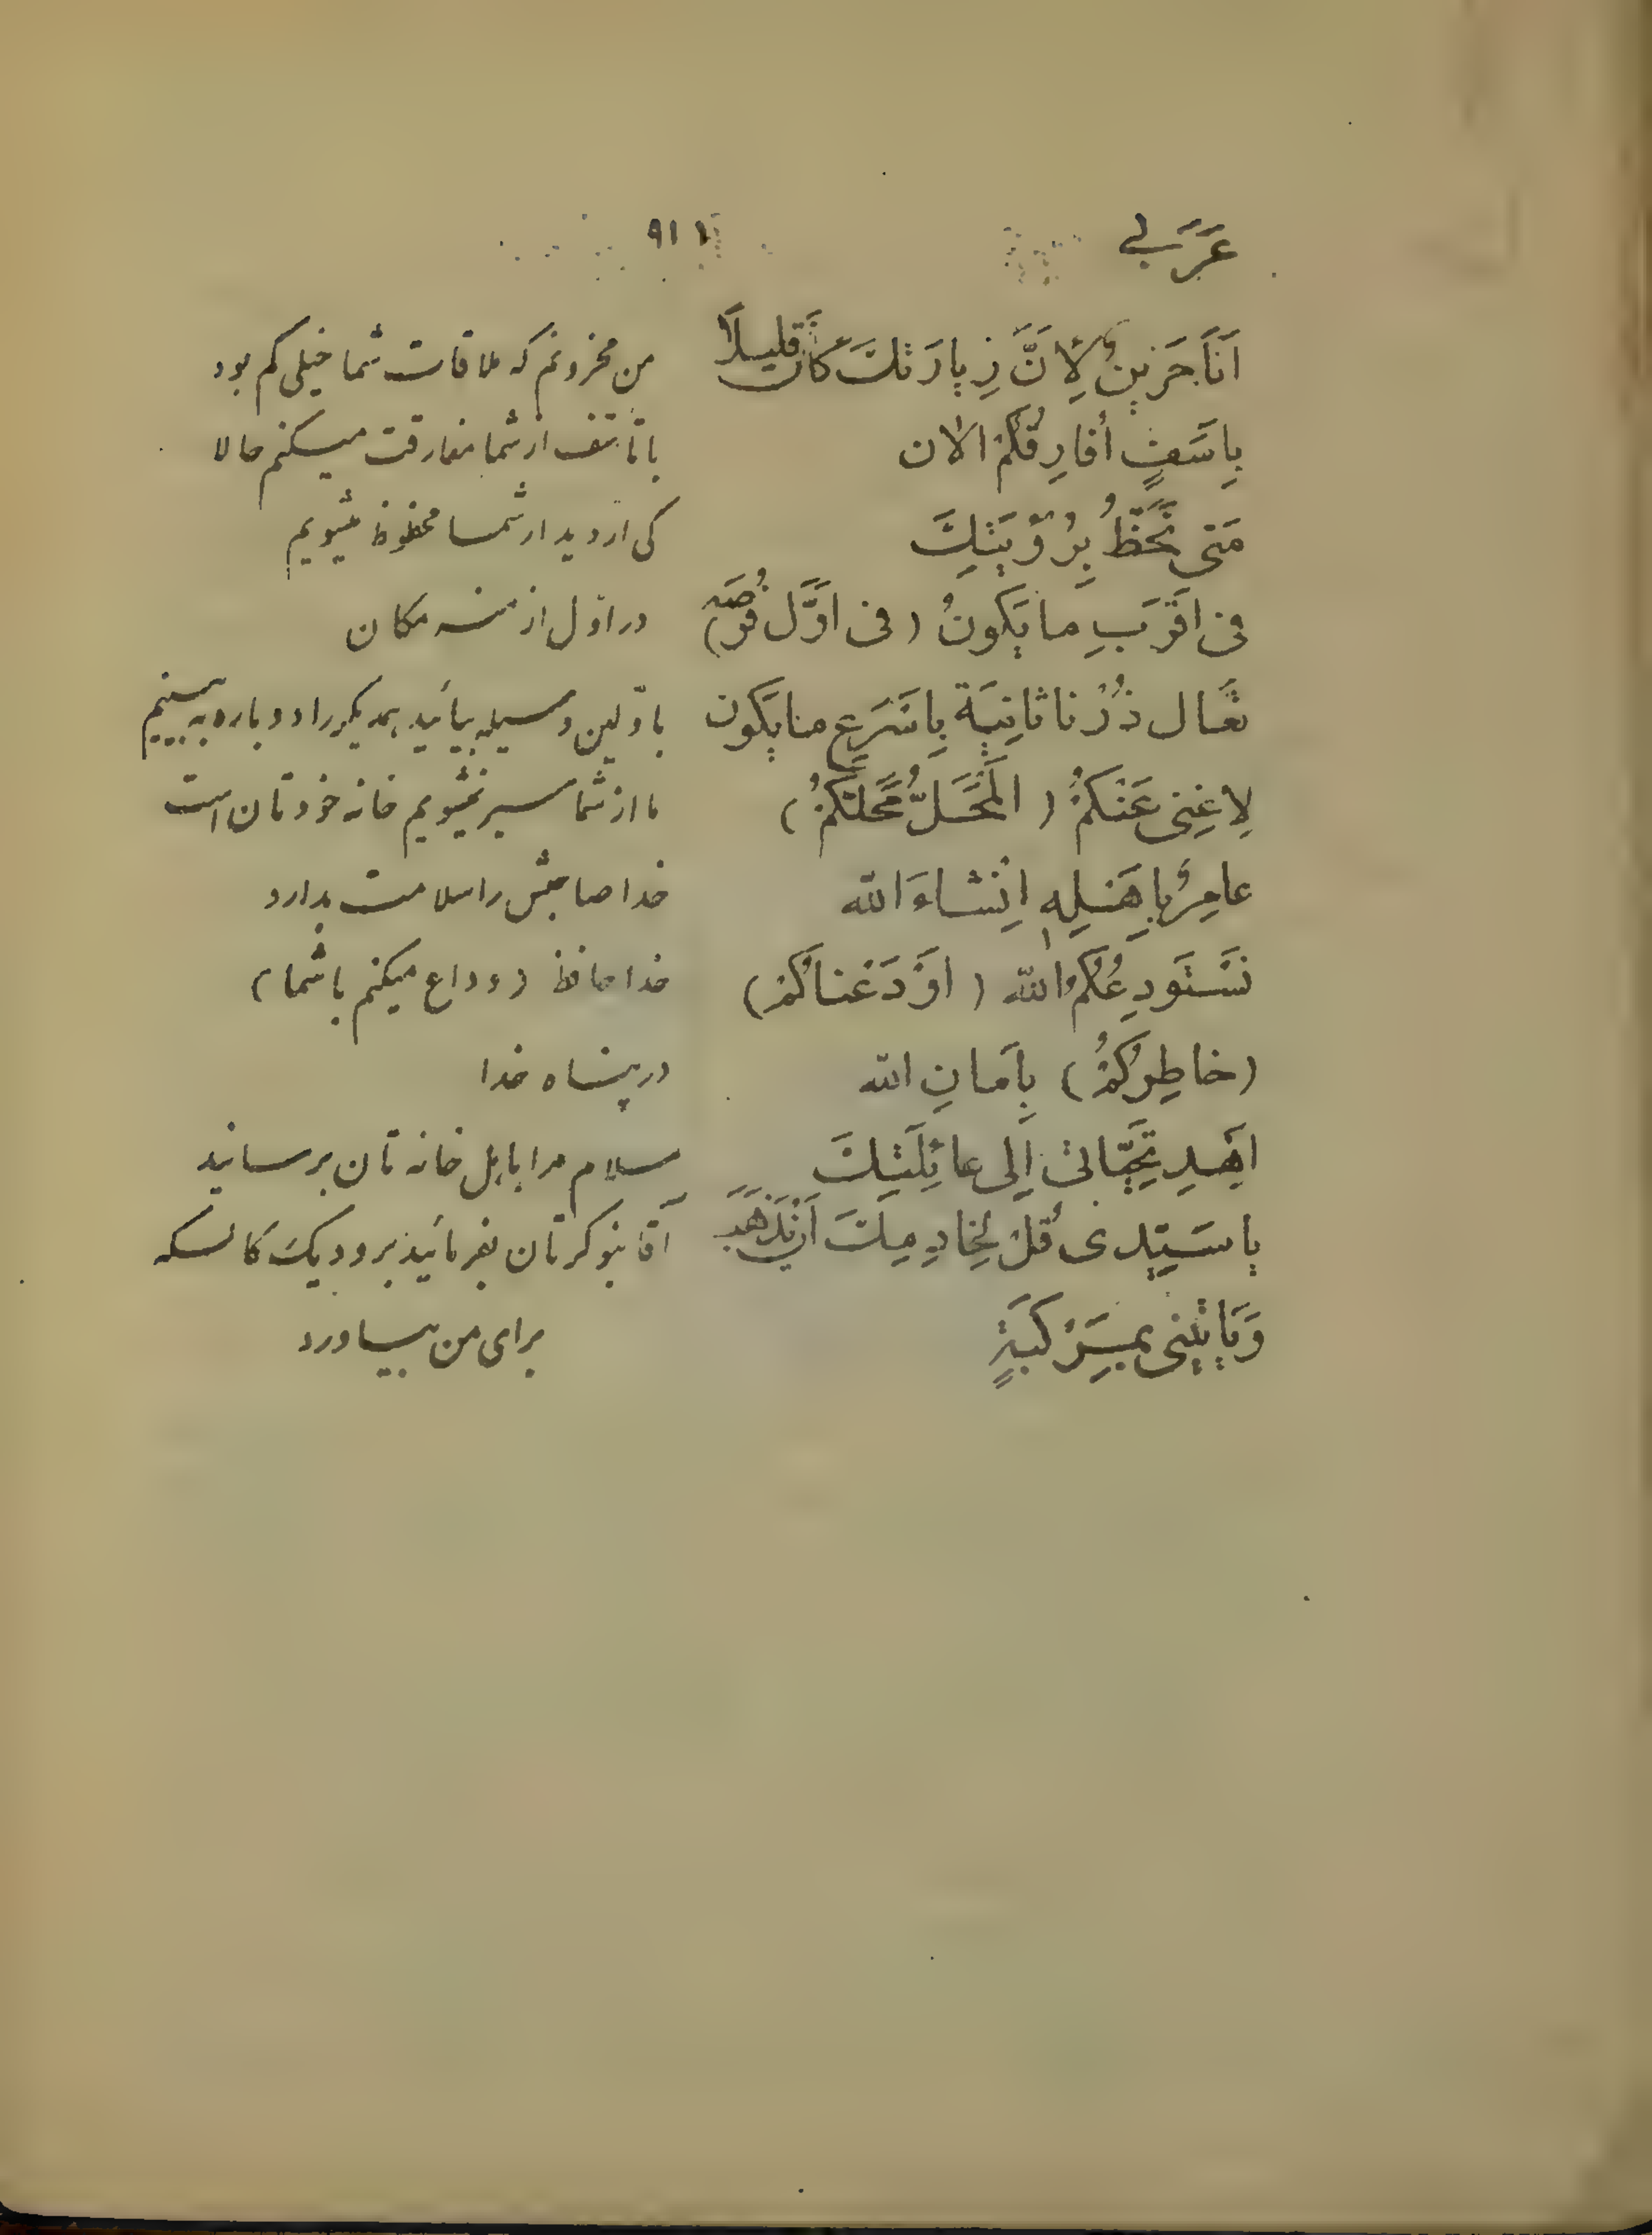 عَرَبی ۹۱۱
اَنَا حَزینٌ لِاَنَّ زِیارَتَكَ کانَت قَلیلَاً من محزونم که ملاقات شما خیلی کم بود
بِاَسَفٍ أُفارِقُكُمْ الاٰن با تأسف از شما مفارقت میکنم حالا
مَتی نَحَظُّ بِرُؤْیَتِكَ کی از دیدار شما محظوظ میشویم
فی اَقْرَبِ ما یَکُونُ (فی اَوَّل فُرْصَة) در اوّل ازمنه مکان
تَعَال زُرْنا ثانِیَة بِاَسْرَعِ ما یَکُون با وّلین وسیله بیائید همدیگر را دوباره به بینیم
لا غِنی عَنْکُمْ (المَحَلُّ مَحَلُّکُمْ) ما از شما سیر نمیشویم خانه خودتان است
عامِرٌ بِاَهْلِهِ اِنْشاءَ الله خدا صاحبش را سلامت بدارد
نَسْتَودِعُکُمُ الله (اَوْدَعْناکُمْ) خدا حافظ (وداع میکنم با شما)
(خاطِرکُمْ) بِاَمانِ الله در پناه خدا
اَهْدِ تَحِیّاتی اِلی عائِلَتِكَ سلام مرا باهل خانه تان برسانید
یا سَیِّدی قُلْ لِخادِمِكَ اَنْ یَذْهَبَ آقا بنوکرتان بفرمائید برود یک کالسکه
وَیَاْتینی بِمَرْکَبَةٍ برای من بیاورد